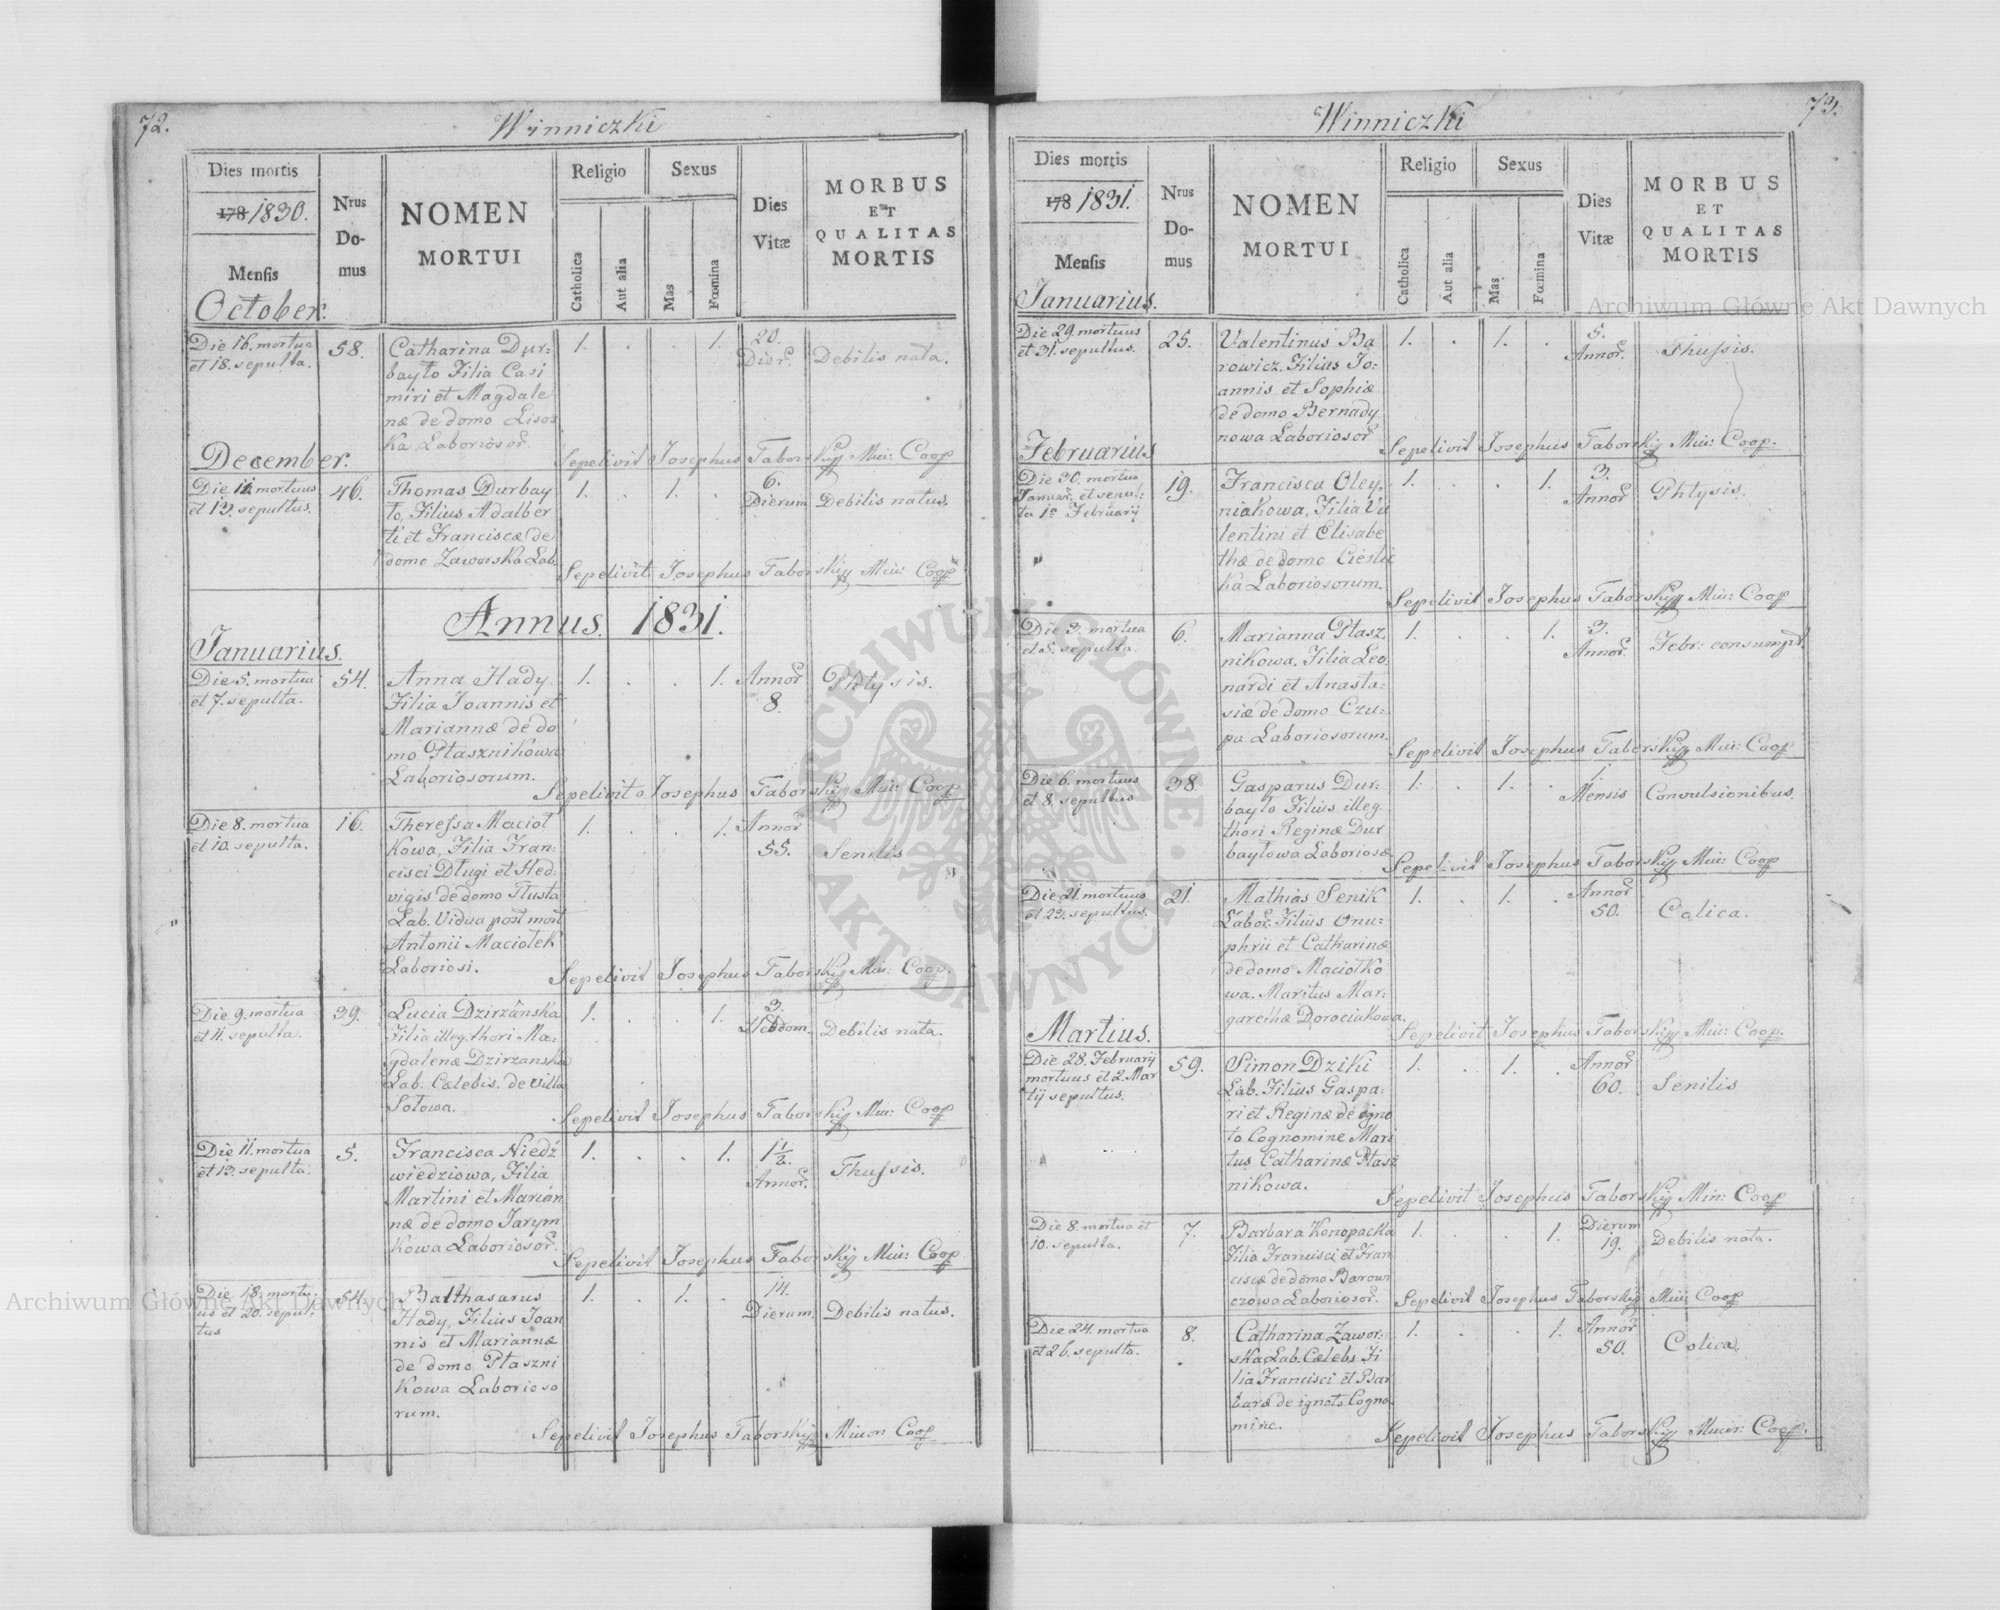 72.
Winniczki
Dies mortis
178 1830.
Mensis
October.
Nrus
Do-
mus
NOMEN
MORTUI
Religio
Catholica
Aut alia
Sexus
Mas
Fœmina
Dies
Vitæ
MORBUS
ET
QUALITAS
MORTIS
Die 16. mortua
et 18. sepulta.
58.
Catharina Dur:
bayło Filia Casi
miri et Magdale
næ de domo Lisow
ka Laboriosor.
1. . . 1.
20.
Dier.
Debilis nata.
Sepelivit Josephus Taborskij Min: Coop
December.
Die 11. mortuus
et 13. sepultus.
46.
Thomas Durbay
ło, Filius Adalber
ti et Franciscæ de
domo Zaworska Lab.
1. . 1. .
6.
Dierum
Debilis natus.
Sepelivit Josephus Taborskij Min: Coop
Annus. 1831.
Januarius.
Die 5. mortua
et 7. sepulta.
54.
Anna Hady
Filia Joannis et
Mariannæ de do
mo Ptasznikowa
Laboriosorum.
1. . . 1.
Annor
8.
Phtysis.
Sepelivit Josephus Taborskij Min: Coop
Die 8. mortua
et 10. sepulta.
16.
Theressa Macioł
kowa, Filia Fran:
cisci Długi et Hed:
vigis de domo Tłusta
Lab. Vidua post mort
Antonii Maciołek
Laboriosi.
1. . . 1.
Annor
55.
Senilis
Sepelivit Josephus Taborskij Min: Coop.
Die 9. mortua
et 11. sepulta.
39.
Lucia Dzirzanska
Filia illeg. thori Ma:
gdalenæ Dzirzanska
Lab. Cælebis. de villa
Sołowa.
1. . . 1.
3.
Hebdom.
Debilis nata.
Sepelivit Josephus Taborskij Min: Coop
Die 11. mortua
et 13. sepulta.
5.
Francisca Niedź
wiedziowa, Filia
Martini et Marian
næ de domo Jarym
kowa Laboriosor.
1. . . 1.
1 1/2.
Annor.
Thussis.
Sepelivit Josephus Taborskij Min: Coop
Die 18. mortu:
us et 20. sepul:
tus
54.
Balthasarus
Hady, Filius Joan
nis et Mariannæ
de domo Ptaszni
kowa Laborioso
rum.
1. . 1. .
14.
Dierum
Debilis natus.
Sepelivit Josephus Taborskij Minor Coop
73.
Winniczki
Dies mortis
178 1831.
Mensis
Januarius.
Nrus
Do-
mus
NOMEN
MORTUI
Religio
Catholica
Aut alia
Sexus
Mas
Fœmina
Dies
Vitæ
MORBUS
ET
QUALITAS
MORTIS
Die 29. mortuus
et 31. sepultus.
25.
Valentinus Ba
rowicz. Filius Jo:
annis et Sophiæ
de domo Bernady
nowa Laboriosor
1. . 1. .
5.
Annor.
Thussis.
Sepelivit Josephus Taborskij Min: Coop.
Februarius
Die 30. mortua
Januar. et sepul:
ta 1a Februarij
19.
Francisca Oley:
niakowa, Filia Va
lentini et Elisabe
thæ de domo Cieslic
ka Laboriosorum.
1. . . 1.
3.
Annor
Phtysis.
Sepelivit Josephus Taborskij Min: Coop
Die 3. mortua
et 5. sepulta.
6.
Marianna Ptasz
nikowa. Filia Leo
nardi et Anasta:
siæ de domo Czu:
pa Laboriosorum.
1. . . 1.
3.
Annor.
Febr: consumpt.
Sepelivit Josephus Taborskij Min: Coop
Die 6. mortuus
et 8. sepultus
38.
Gasparus Dur:
bayło Filius illeg.
thori Reginæ Dur
bayłowa Laboriosæ
1. . 1. .
1.
Mensis
Convulsionibus.
Sepelivit Josephus Taborskij Min: Coop
Die 21. mortuus
et 23. sepultus.
21.
Mathias Senik
Labor. Filius Onu:
phrii et Catharinæ
de domo Maciołko
wa. Maritus Mar:
garethæ Dorociakowa.
1. . 1. .
Annor
50.
Colica.
Sepelivit Josephus Taborskij Min: Coop.
Martius.
Die 28. Februarij
mortuus et 2. Mar
tij sepultus.
59.
Simon Dziki
Lab. Filius Gaspa:
ri et Reginæ de igno
to Cognomine Mari
tus Catharinæ Ptasz
nikowa.
1. . 1. .
Annor
60.
Senilis
Sepelivit Josephus Taborskij Min: Coop
Die 8. mortua et
10. sepulta.
7.
Barbara Konopacka
Filia Francisci et Fran
ciscæ de domo Barowi
czowa Laboriosor.
1. . . 1.
Dierum
19.
Debilis nata.
Sepelivit Josephus Taborskij Min: Coop
Die 24. mortua
et 26. sepulta.
8.
Catharina Zawor:
ska Lab. Cælebs Fi
lia Francisci et Bar
baræ de ignoto Cogno
mine.
1. . . 1.
Annor
50.
Colica.
Sepelivit Josephus Taborskij Minor: Coop.
Archiwum Główne Akt Dawnych
Archiwum Główne Akt Dawnych
ARCHIWUM GŁÓWNE
AKT DAWNYCH